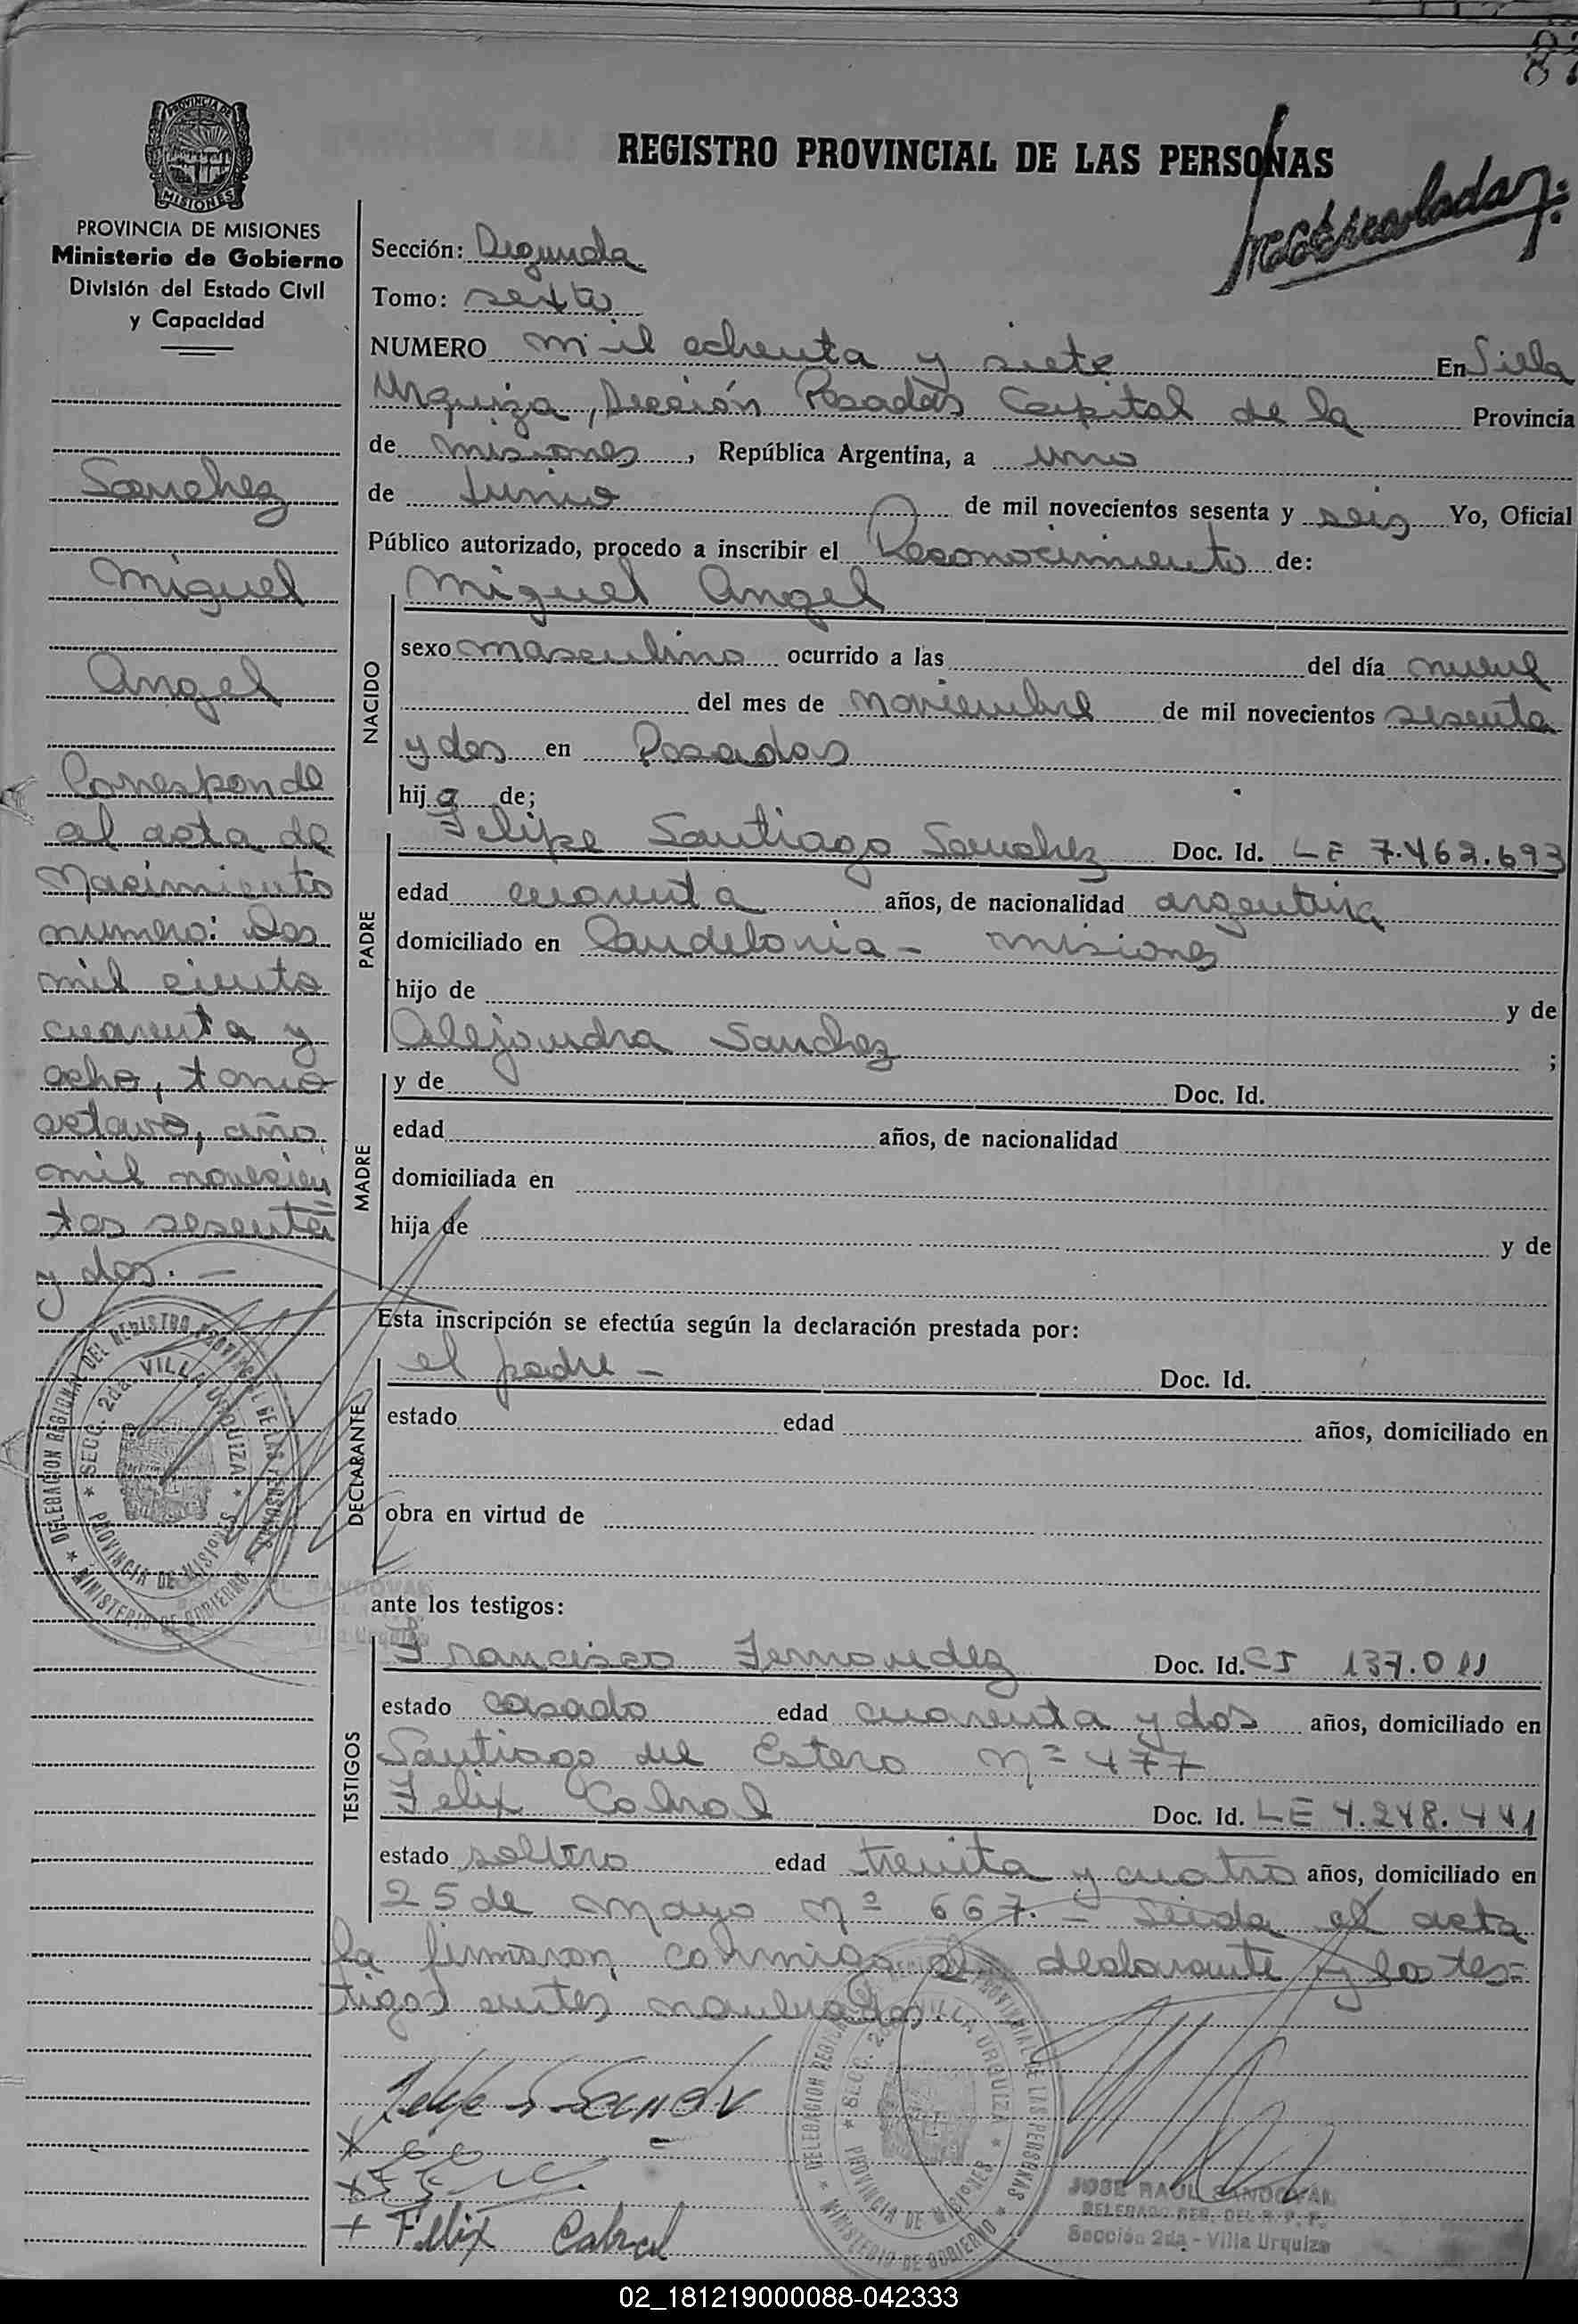 87
REGISTRO PROVINCIAL DE LAS PERSONAS
PROVINCIA DE
MISIONES
PROVINCIA DE MISIONES
Ministerio de Gobierno
División del Estado Civil
y Capacidad
Sanchez
Miguel
Angel
Corresponde
al acta de
Nacimiento
numero: Dos
mil ciento
cuarenta y
ocho, tomo
octavo, año
mil novecien
tos sesenta
y dos. —
Sección: Segunda
Tomo: sexto
NUMERO mil ochenta y siete En Villa
Urquiza, Sección Posadas Capital de la Provincia
de Misiones, República Argentina, a uno
de Junio de mil novecientos sesenta y seis Yo, Oficial
Público autorizado, procedo a inscribir el Reconocimiento de:
NACIDO
Miguel Angel
sexo masculino ocurrido a las del día nueve
del mes de Noviembre de mil novecientos sesenta
y dos en Posadas
hijo de;
PADRE
Felipe Santiago Sanchez Doc. Id. LE 7.462.693
edad cuarenta años, de nacionalidad argentina
domiciliado en Candelaria - Misiones
hijo de y de
Alejandra Sanchez ;
MADRE
y de Doc. Id.
edad años, de nacionalidad
domiciliada en
hija de y de
Esta inscripción se efectúa según la declaración prestada por:
DECLARANTE
el padre — Doc. Id.
estado edad años, domiciliado en
obra en virtud de
ante los testigos:
TESTIGOS
Francisco Fernandez Doc. Id. CI 137.011
estado casado edad cuarenta y dos años, domiciliado en
Santiago del Estero Nº 477
Felix Cabral Doc. Id. LE 4.248.441
estado soltero edad treinta y cuatro años, domiciliado en
25 de Mayo Nº 667. — Leida el acta
la firmaron conmigo el declarante y los tes=
tigos antes nombrados.
DELEGACION REGIONAL DEL REGISTRO PROVINCIAL DE LAS PERSONAS
SECC. 2da. VILLA URQUIZA
PROVINCIA DE MISIONES
MINISTERIO DE GOBIERNO
DELEGACION REGIONAL DEL REGISTRO PROVINCIAL DE LAS PERSONAS
SECC. 2da. VILLA URQUIZA
PROVINCIA DE MISIONES
MINISTERIO DE GOBIERNO
+ Felix Cabral
JOSE RAUL SANDOVAL
DELEGADO REG. DEL R. P. P.
Sección 2da - Villa Urquiza
02_181219000088-042333